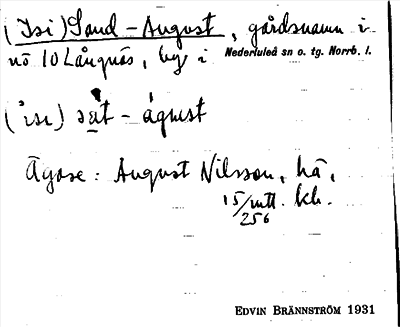 (Isi) Sand-August, gårdsnamn i
nö 10 Långnäs, by i Nederluleå sn o. tg. Norrb. l.
(isi) sat-agust
Ägare: August Nilsson, hä,
15/mtl. kh.
256
EDVIN BRÄNNSTRÖM 1931